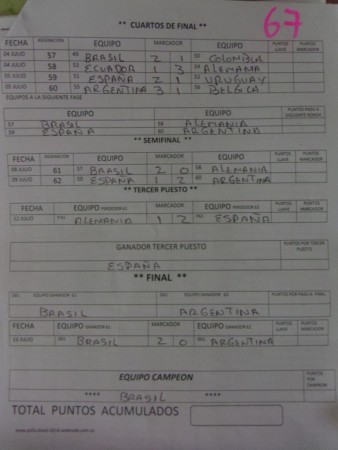 ** CUARTOS DE FINAL **
67
FECHA ASIGNACION EQUIPO MARCADOR EQUIPO PUNTOS LLAVE PUNTOS MARCADOR
04 JULIO 57 BRASIL 2 1 COLOMBIA
04 JULIO 58 ECUADOR 1 3 ALEMANIA
05 JULIO 59 ESPAÑA 2 1 URUGUAY
05 JULIO 60 ARGENTINA 3 1 BELGICA
EQUIPOS A LA SIGUIENTE FASE
57 BRASIL 58 ALEMANIA
59 ESPAÑA 60 ARGENTINA
** SEMIFINAL **
FECHA ASIGNACION EQUIPO MARCADOR EQUIPO PUNTOS LLAVE PUNTOS MARCADOR
08 JULIO 61 57 BRASIL 2 0 58 ALEMANIA
09 JULIO 62 59 ESPAÑA 1 2 60 ARGENTINA
** TERCER PUESTO **
FECHA EQUIPO PERDEDOR 61 MARCADOR EQUIPO PERDEDOR 62 PUNTOS LLAVE PUNTOS MARCADOR
12 JULIO ALEMANIA 1 2 ESPAÑA
GANADOR TERCER PUESTO PUNTOS POR TERCER PUESTO
ESPAÑA
** FINAL **
EQUIPO GANADOR 61 EQUIPO GANADOR 62
BRASIL ARGENTINA
FECHA EQUIPO GANADOR 61 MARCADOR EQUIPO GANADOR 62 PUNTOS LLAVE PUNTOS MARCADOR
13 JULIO BRASIL 2 0 ARGENTINA
EQUIPO CAMPEON PUNTOS POR CAMPEON
**** BRASIL ****
TOTAL PUNTOS ACUMULADOS